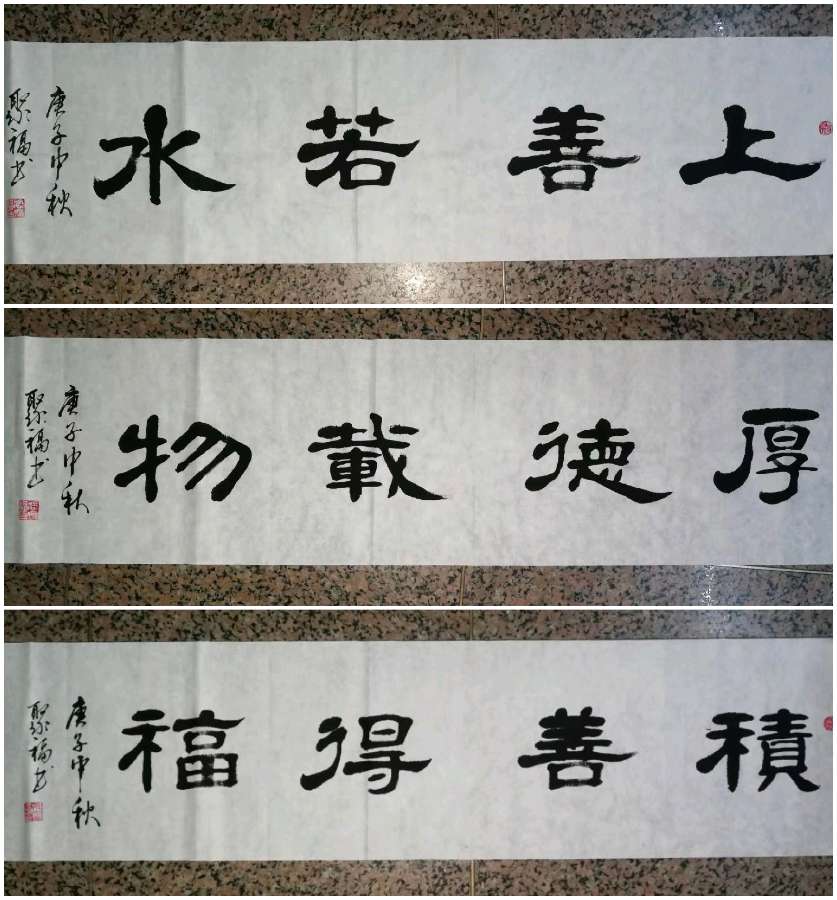 上善若水
庚子中秋
聚福书
厚德載物
庚子中秋
聚福书
積善得福
庚子中秋
聚福书